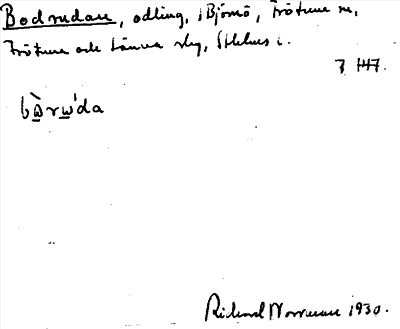 Bodrudan, odling, i Björnö, Frötuna sn,
Frötuna och Länna slg, Sthlms l.
7 H47.
bàrω'da
Rickard Norrman 1930.